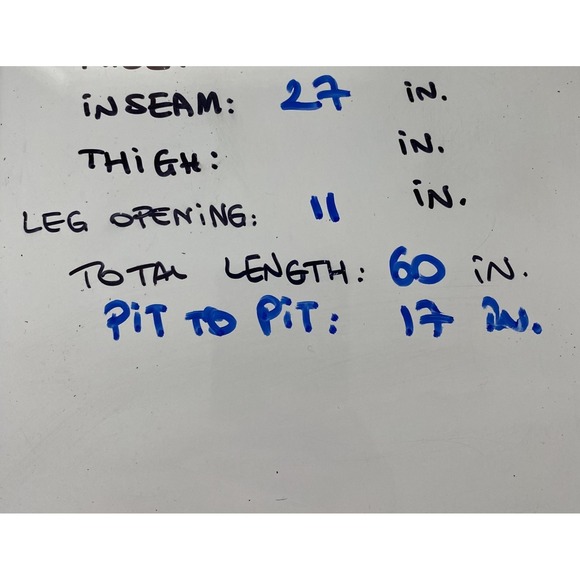 iNSEAM: 27 iN.
THiGH: iN.
LEG OPENiNG: 11 iN.
TOTAL LENGTH: 60 iN.
PiT TO PiT: 17 IN.